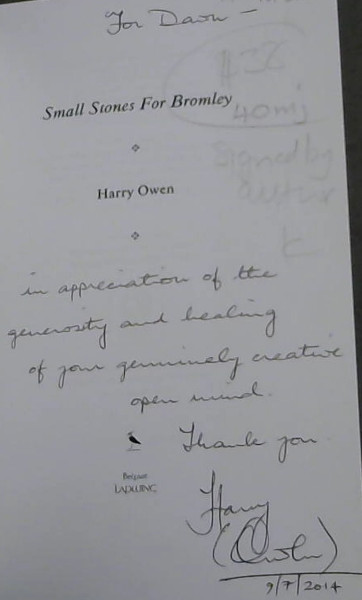 For Dawn —
Small Stones For Bromley
Harry Owen
in appreciation of the
generosity and healing
of your genuinely creative
open mind.
Thank you
Harry
Belgian
LAPWING
9/7/2014
40mj
Signed by